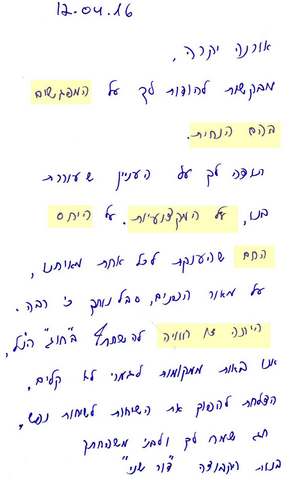 12.04.16
אורנה יקרה,
מבקשות להודות לך על המפגשים
בהם הנחית.
תודה לך על הענין שעוררת
בנו, על המקצועיות. על היחס
החם שהענקת לכל אחת מאיתנו,
על מאור הפנים, סבלנותך כי רבה.
היתה זו חוויה להשתתף ב"חוג" הנ"ל,
אנו באות ממקומות לגמרי לא קלים,
הצלחת להפוך את השיחות לשיחות נפש,
חג שמח לך ולבני משפחתך
בנות הקבוצה "דור שני"